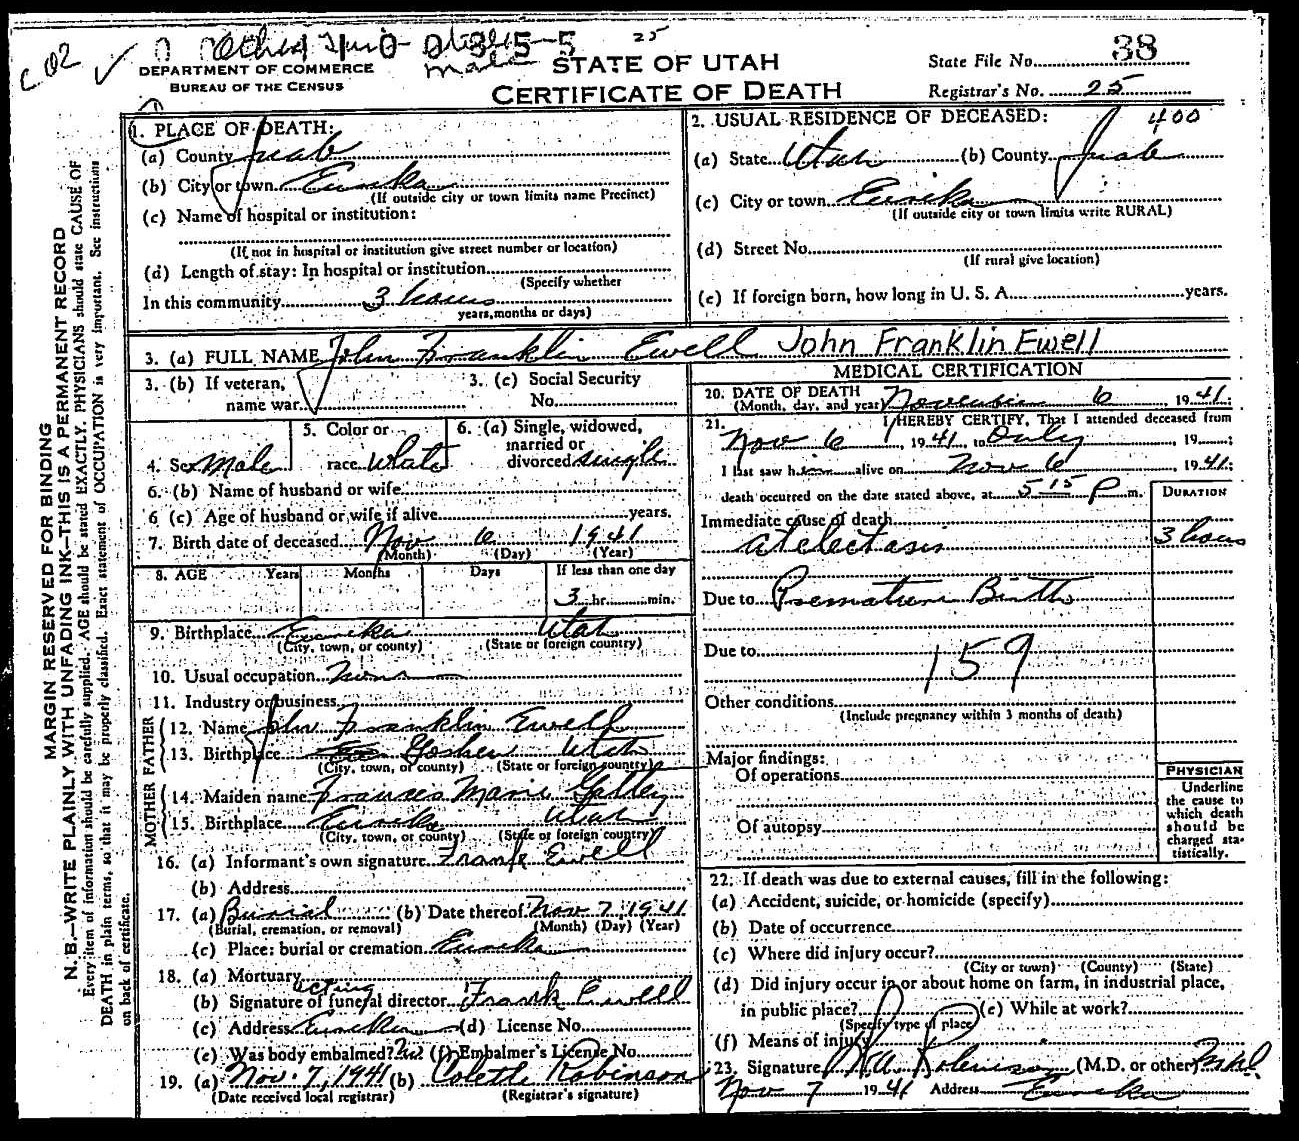 C.02 ✓
25
STATE OF UTAH
CERTIFICATE OF DEATH
DEPARTMENT OF COMMERCE
BUREAU OF THE CENSUS
State File No. 38
Registrar's No. 25
MARGIN RESERVED FOR BINDING
N.B.—WRITE PLAINLY WITH UNFADING INK—THIS IS A PERMANENT RECORD
Every item of information should be carefully supplied. AGE should be stated EXACTLY. PHYSICIANS should state CAUSE OF
DEATH in plain terms, so that it may be properly classified. Exact statement of OCCUPATION is very important. See instructions
on back of certificate.
1. PLACE OF DEATH:
(a) County Juab
(b) City or town Eureka
(If outside city or town limits name Precinct)
(c) Name of hospital or institution:
(If not in hospital or institution give street number or location)
(d) Length of stay: In hospital or institution
(Specify whether
In this community 3 hours
years, months or days)
2. USUAL RESIDENCE OF DECEASED: 400
(a) State Utah (b) County Juab
(c) City or town Eureka
(If outside city or town limits write RURAL)
(d) Street No.
(If rural give location)
(e) If foreign born, how long in U. S. A. years.
3. (a) FULL NAME John Franklin Ewell John Franklin Ewell
3. (b) If veteran,
name war
3. (c) Social Security
No.
4. Sex Male
5. Color or
race White
6. (a) Single, widowed,
married or
divorced single
6. (b) Name of husband or wife
6 (c) Age of husband or wife if alive years.
7. Birth date of deceased Nov 6 1941
(Month) (Day) (Year)
8. AGE Years Months Days If less than one day
3 hr. min.
9. Birthplace Eureka Utah
(City, town, or county) (State or foreign country)
10. Usual occupation None
11. Industry or business
FATHER
12. Name John Franklin Ewell
13. Birthplace Goshen Utah
(City, town, or county) (State or foreign country)
MOTHER
14. Maiden name Frances Marie
15. Birthplace Eureka Utah
(City, town, or county) (State or foreign country)
16. (a) Informant's own signature Frank Ewell
(b) Address
17. (a) Burial (b) Date thereof Nov 7, 1941
(Burial, cremation, or removal) (Month) (Day) (Year)
(c) Place: burial or cremation Eureka
18. (a) Mortuary
acting
(b) Signature of funeral director Frank Ewell
(c) Address Eureka (d) License No.
(e) Was body embalmed? No (f) Embalmer's License No.
19. (a) Nov. 7, 1941 (b) Colette Robinson
(Date received local registrar) (Registrar's signature)
MEDICAL CERTIFICATION
20. DATE OF DEATH
(Month, day, and year) November 6, 1941;
21. I HEREBY CERTIFY, That I attended deceased from
Nov 6, 1941, to Only, 19 ;
I last saw him alive on Nov 6, 1941;
death occurred on the date stated above, at 5 15 P m.
DURATION
Immediate cause of death
atelectasis 3 hours
Due to Premature Birth
Due to
159
Other conditions
(Include pregnancy within 3 months of death)
Major findings:
Of operations
Of autopsy
PHYSICIAN
Underline
the cause to
which death
should be
charged sta-
tistically.
22. If death was due to external causes, fill in the following:
(a) Accident, suicide, or homicide (specify)
(b) Date of occurrence
(c) Where did injury occur?
(City or town) (County) (State)
(d) Did injury occur in or about home on farm, in industrial place,
in public place? (e) While at work?
(Specify type of place)
(f) Means of injury
23. Signature (M.D. or other)
Nov 7 1941 Address Eureka